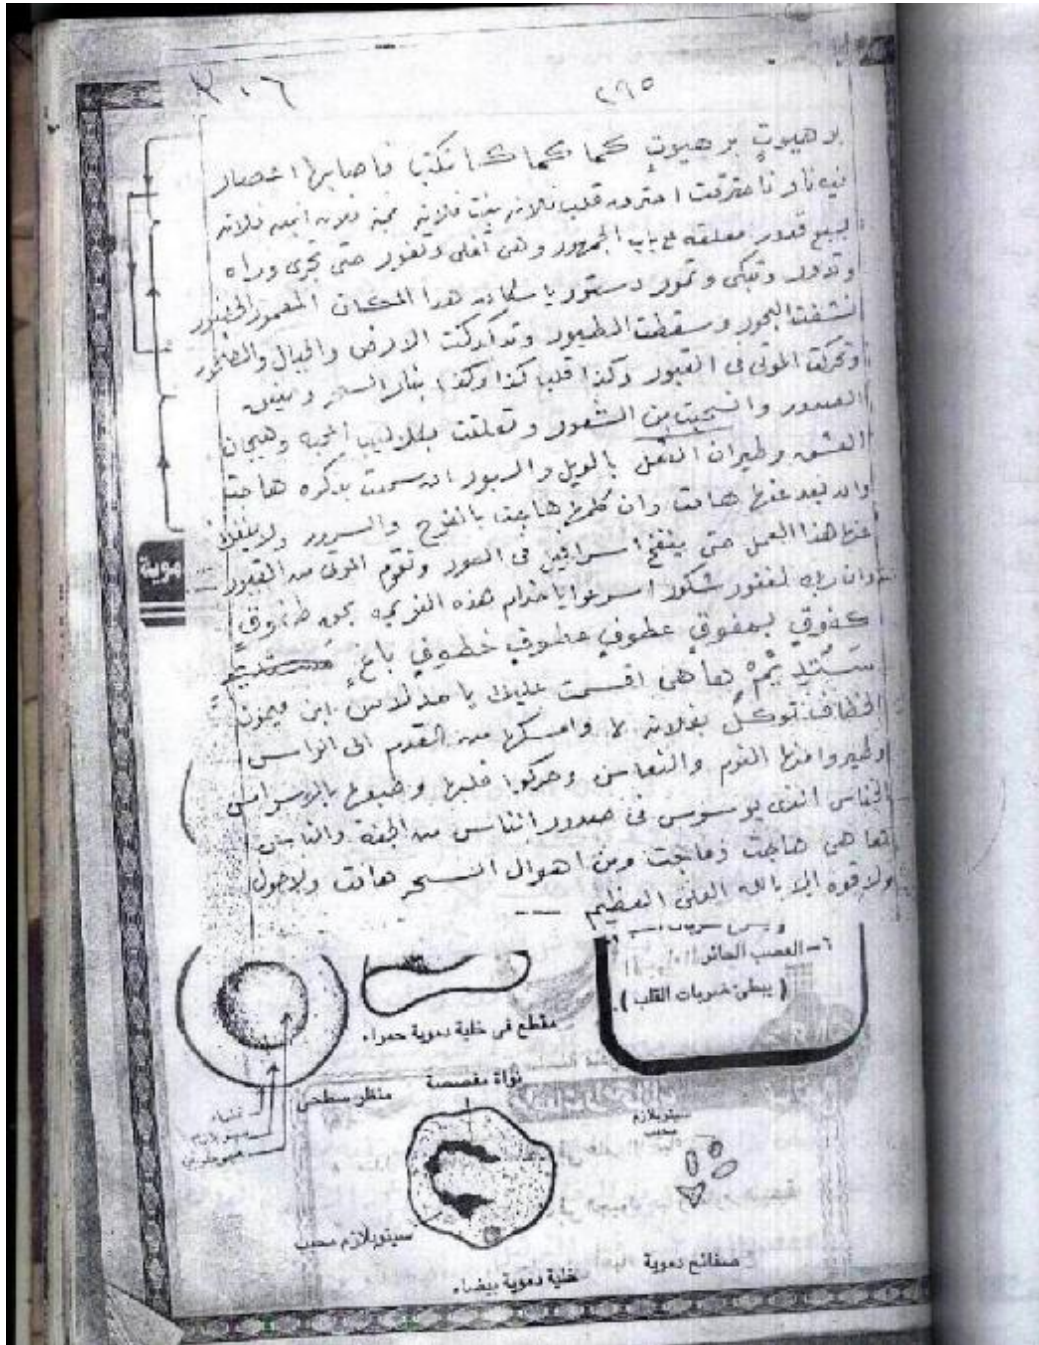 ٣٠٦
٢٩٥
برهيوت برهيوت كما كما كما نكتب فاصابها اعصار
فيه نار فاحترقت احترق قلب فلانه بنت فلانه بمحبة فلان ابن فلانه
بسبع قدور معلقه على باب الجمهور وهى تغلى وتفور حتى تجرى وراه
وتدور وتبكى وتمور دستور يا سكان هذا المكان المعمور الحضور
نشفت البحور وسقطت الطيور وتدكدكت الارض والجبال والصخور
وتحركت الموتى فى القبور وكذا قلب كذا وكذا بنار السحر و
الصدور وانسحبت من الشعور وتعلقت بكلاليب المحبه وهيجان
العشق وطيران العقل بالويل والثبور ان سمعت بذكره هاجت
وان بعد عنها هامت وان كلمها هاجت بالفرح والسرور ولا ينفك
عنها هذا العمل حتى ينفخ اسرافيل فى الصور وتقوم الموتى من القبور
وان ربك لغفور شكور اسرعوا يا خدام هذه العزيمه بحق طفوف
كفوف بهفوف عطوف عطوف خطوف باغ
ها هى اقسمت عليك يا ابن ميمون
الخطاف توكل بفلانه وامسكها من القدم الى الراس
وطيروا منها النوم والنعاس وحركوا قلبها وطبعها بالوسواس
الخناس الذى يوسوس فى صدور الناس من الجنة والناس
ها هى هاجت وماجت ومن اهوال السحر هامت ولا حول
ولا قوه الا بالله العلى العظيم
موية
٦ـ العصب الحائر
( يبطئ ضربات القلب ).
مقطع فى خلية دموية حمراء
نواة مفصصة
منظر سطحى
غشاء
سيتوبلازم
هيموجلوبين
سيتوبلازم
محبب
سيتوبلازم محبب
صفائح دموية
خلية دموية بيضاء